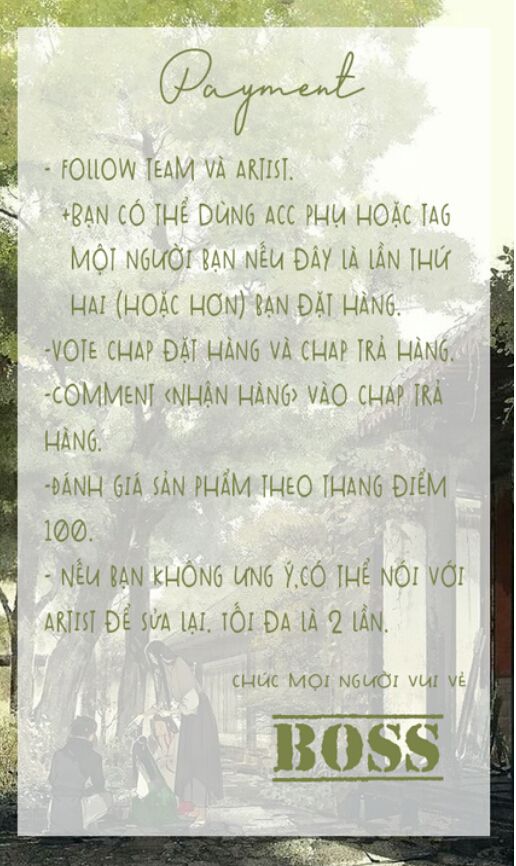 Payment
- FOLLOW TEAM VÀ ARTIST.
+BẠN CÓ THỂ DÙNG ACC PHỤ HOẶC TAG
MỘT NGƯỜI BẠN NẾU ĐÂY LÀ LẦN THỨ
HAI (HOẶC HƠN) BẠN ĐẶT HÀNG.
-VOTE CHAP ĐẶT HÀNG VÀ CHAP TRẢ HÀNG.
-COMMENT <NHẬN HÀNG> VÀO CHAP TRẢ
HÀNG.
-ĐÁNH GIÁ SẢN PHẨM THEO THANG ĐIỂM
100.
- NẾU BẠN KHÔNG ƯNG Ý,CÓ THỂ NÓI VỚI
ARTIST ĐỂ SỬA LẠI. TỐI ĐA LÀ 2 LẦN.
CHÚC MỌI NGƯỜI VUI VẺ
BOSS